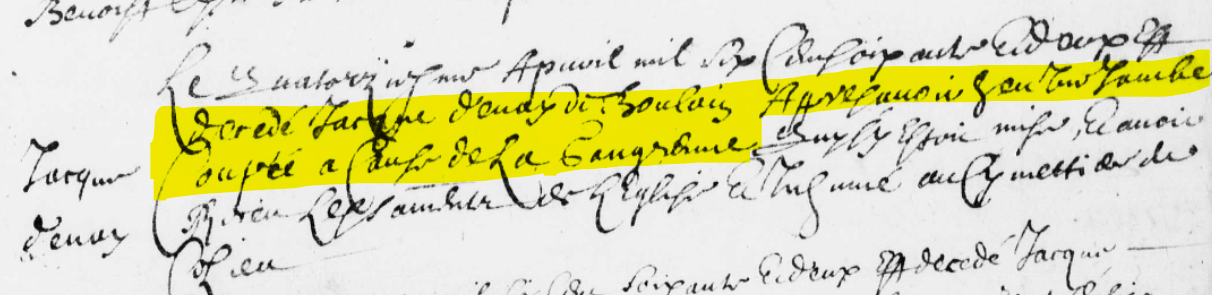 Benoist
Le quatorziesme Apvril mil six Cens soixante et deux est
decedé Jacque denay de Choulain Apres avoir heu une Jambe
Couppé a Cause de La Gangrenne quy sy estoit mise, et avoir
Jacque
Receu les sacrements de l'Eglise et Inhumé au Cymettiere de
denay
soixante et deux est decedé Jacque